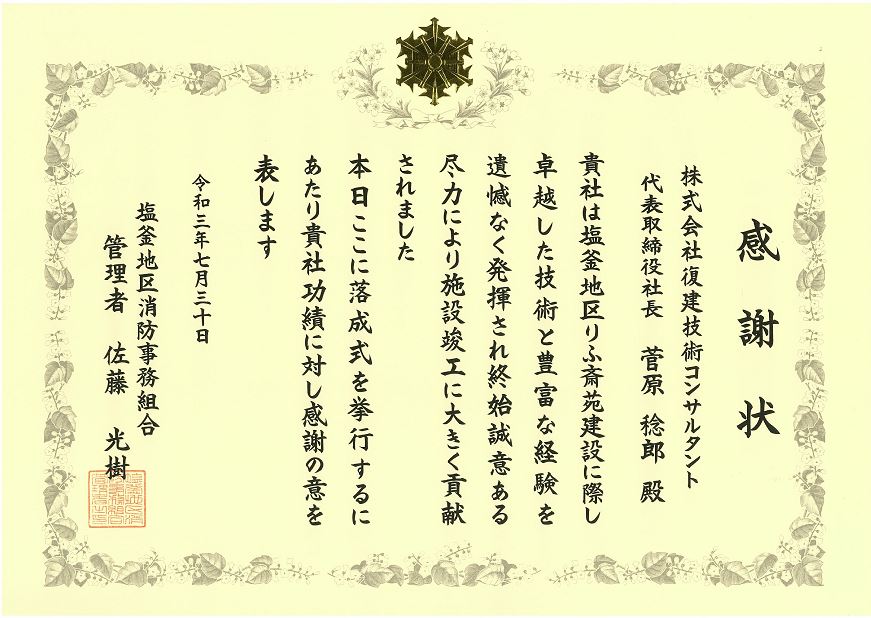 感謝状
株式会社復建技術コンサルタント
代表取締役社長 菅原 稔郎 殿
貴社は塩釜地区りふ斎苑建設に際し
卓越した技術と豊富な経験を
遺憾なく発揮され終始誠意ある
尽力により施設竣工に大きく貢献
されました
本日ここに落成式を挙行するに
あたり貴社功績に対し感謝の意を
表します
令和三年七月三十日
塩釜地区消防事務組合
管理者 佐藤 光樹